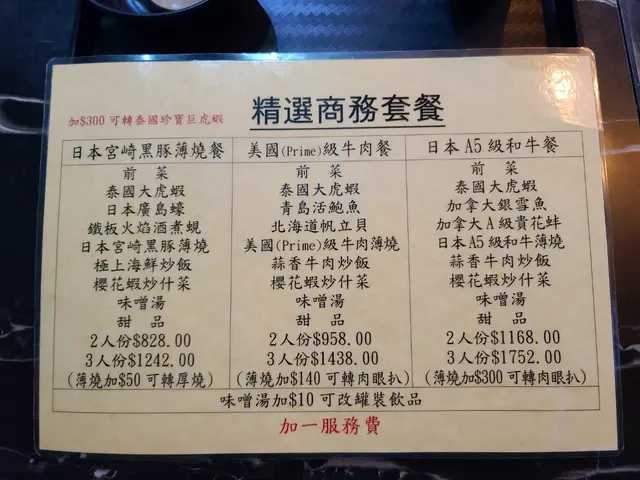 加$300可轉泰國珍寶巨虎蝦
精選商務套餐
日本宮崎黑豚薄燒餐
前菜
泰國大虎蝦
日本廣島蠔
鐵板火焰酒煮蜆
日本宮崎黑豚薄燒
極上海鮮炒飯
櫻花蝦炒什菜
味噌湯
甜品
2人份$828.00
3人份$1242.00
(薄燒加$50可轉厚燒)
美國(Prime)級牛肉餐
前菜
泰國大虎蝦
青島活鮑魚
北海道帆立貝
美國(Prime)級牛肉薄燒
蒜香牛肉炒飯
櫻花蝦炒什菜
味噌湯
甜品
2人份$958.00
3人份$1438.00
(薄燒加$140可轉肉眼扒)
日本A5級和牛餐
前菜
泰國大虎蝦
加拿大銀雪魚
加拿大A級貴花蚌
日本A5級和牛薄燒
蒜香牛肉炒飯
櫻花蝦炒什菜
味噌湯
甜品
2人份$1168.00
3人份$1752.00
(薄燒加$300可轉肉眼扒)
味噌湯加$10可改罐裝飲品
加一服務費